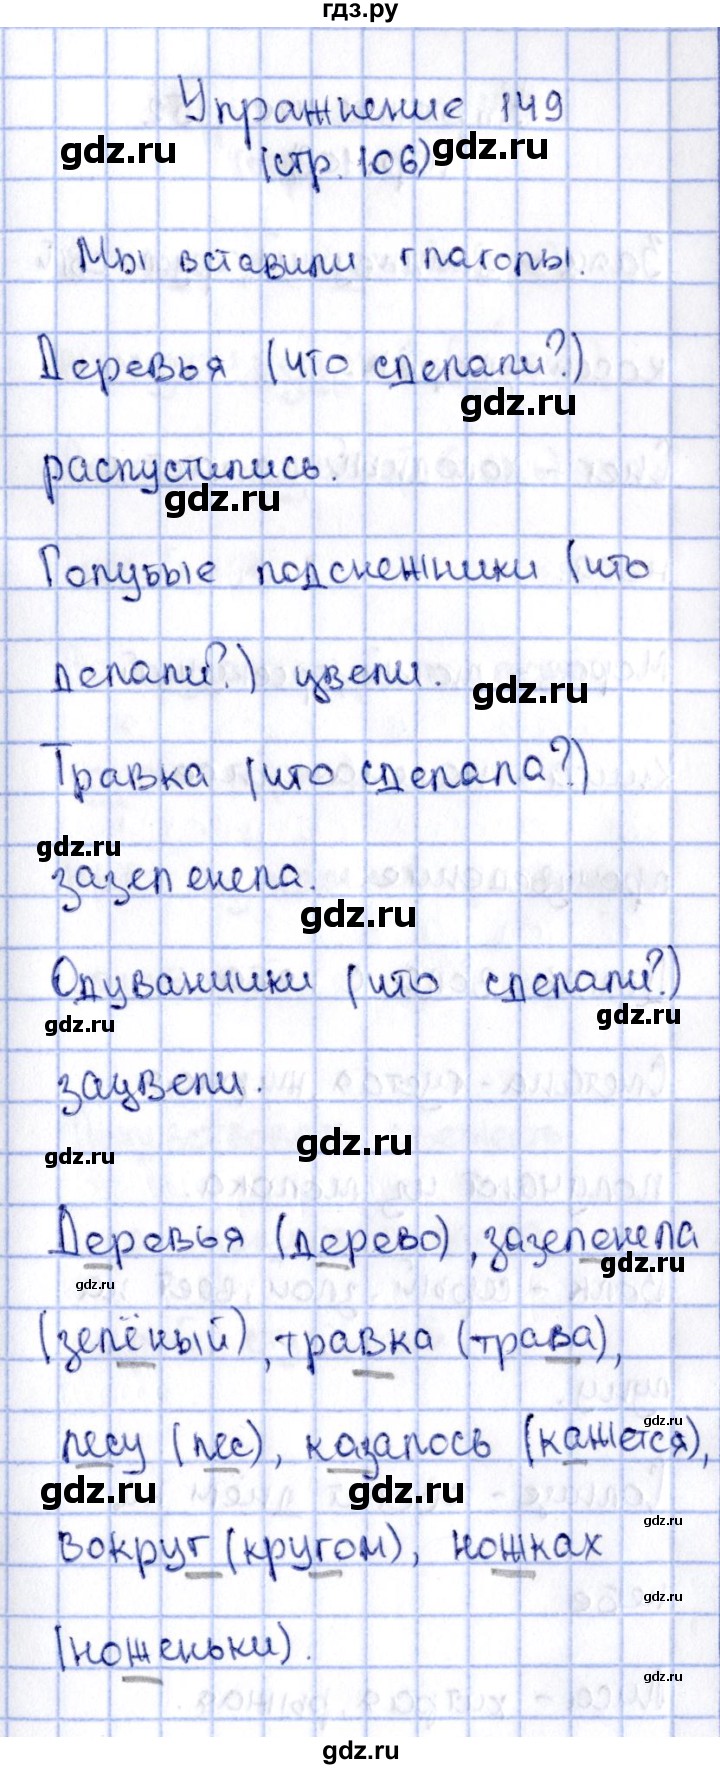 гдз.ру
Упражнение 149
gdz.ru
(стр. 106)
gdz.ru
Мы вставили глаголы.
Деревья (что сделали?)
gdz.ru
распустились.
gdz.ru
Голубые подснежники (что
делали?) цвели.
gdz.ru
Травка (что сделала?)
gdz.ru
зазеленела.
gdz.ru
Одуванчики (что сделали?)
gdz.ru
gdz.ru
зацвели.
gdz.ru
gdz.ru
Деревья (дерево), зазеленела
gdz.ru
gdz.ru
(зелёный), травка (трава),
gdz.ru
лесу (лес), казалось (кажется),
gdz.ru
gdz.ru
gdz.ru
вокруг (кругом), ножках
gdz.ru
(ноженьки).
gdz.ru
gdz.ru